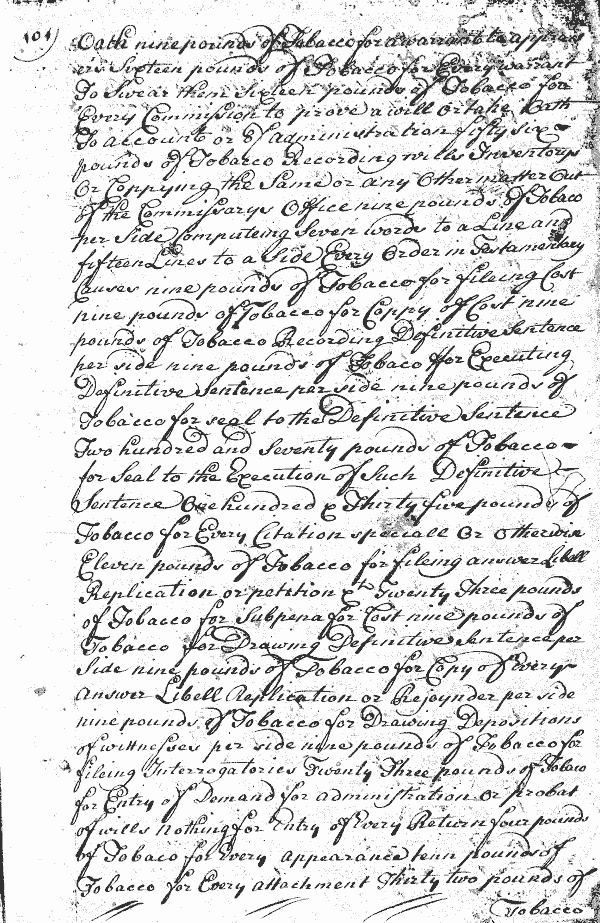 101
Oath nine pounds of Tobacco for a warrant to apprais
ers Sixteen pounds of Tobacco for Every warrant
To Swear them Sixteen pounds of Tobacco for
Every Commission to prove a will or take Oath
To account or of administration fifty six
pounds of Tobacco Recording wills Inventorys
Or Coppying the Same or any Other matter Out
of the Commissarys Office nine pounds of Tobaco
per Side Computeing Seven words to a Line and
fifteen Lines to a Side Every Order in Testamentary
Causes nine pounds of Tobacco for fileing Cost
nine pounds of Tobacco for Coppy of Cost nine
pounds of Tobacco Recording Definitive Sentence
per side nine pounds of Tobaco ffor Executing
Definitive Sentence per side nine pounds of
Tobacco for seal to the Definitive Sentence
Two hundred and Seventy pounds of Tobacco
for Seal to the Execution of Such Definitive
Sentence One hundred & Thirty five pounds of
Tobacco for Every Citation speciall Or Otherwise
Eleven pounds of Tobacco for fileing answer Libell
Replication or petition &c Twenty Three pounds
of Tobacco for Subpena for Cost nine pounds of
Tobacco for Drawing Definitive Sentence per
Side nine pounds of Tobacco for Copy of Every
answer Libell Replication or Rejoynder per side
nine pounds of Tobacco for Drawing Depositions
of wittnesses per side nine pounds of Tobacco for
fileing Interrogatories Twenty Three pounds of Tobaco
for Entry of Demand for administration or probat
of wills nothing for Entry of Every Return four pounds
of Tobaco for Every appearance tenn pounds of
Tobacco for Every attachment Thirty two pounds of
Tobacco